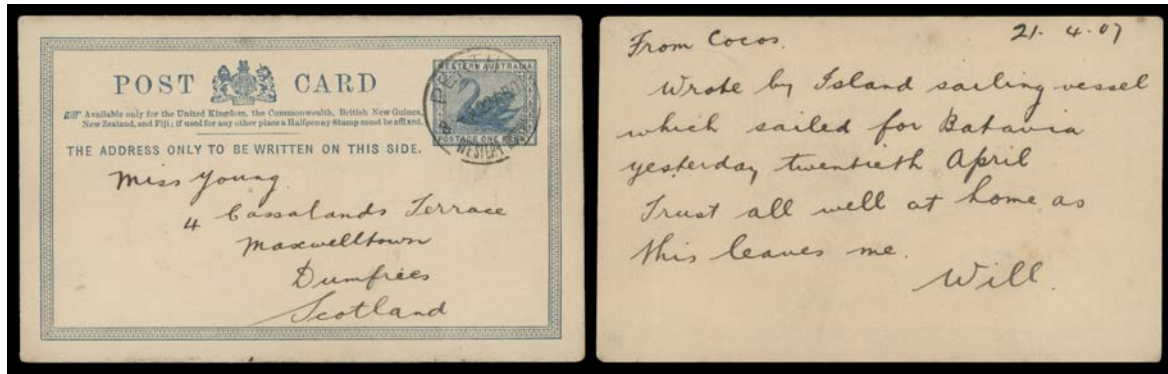 POST CARD
Available only for the United Kingdom, the Commonwealth, British New Guinea,
New Zealand, and Fiji; if used for any other place a Halfpenny Stamp must be affixed.
THE ADDRESS ONLY TO BE WRITTEN ON THIS SIDE.
WESTERN AUSTRALIA
POSTAGE ONE PENNY
PERTH
WESTERN
Miss Young
4 Cassalands Terrace
Maxwelltown
Dumfries
Scotland
From Cocos. 21. 4. 07
Wrote by Island sailing vessel
which sailed for Batavia
yesterday twentieth April
Trust all well at home as
this leaves me.
Will.